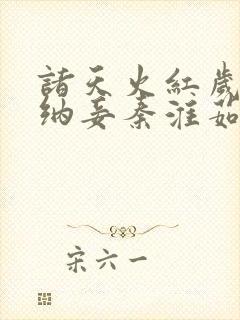 諸天火紅歲
納妾秦淮茹
宋六一